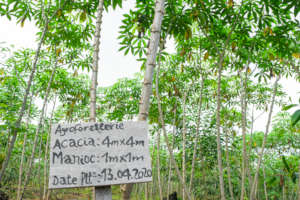 Agroforesterie
Acacia: 4mx4m
Manioc: 1mx1m
Date Plt°: 13.04.2020